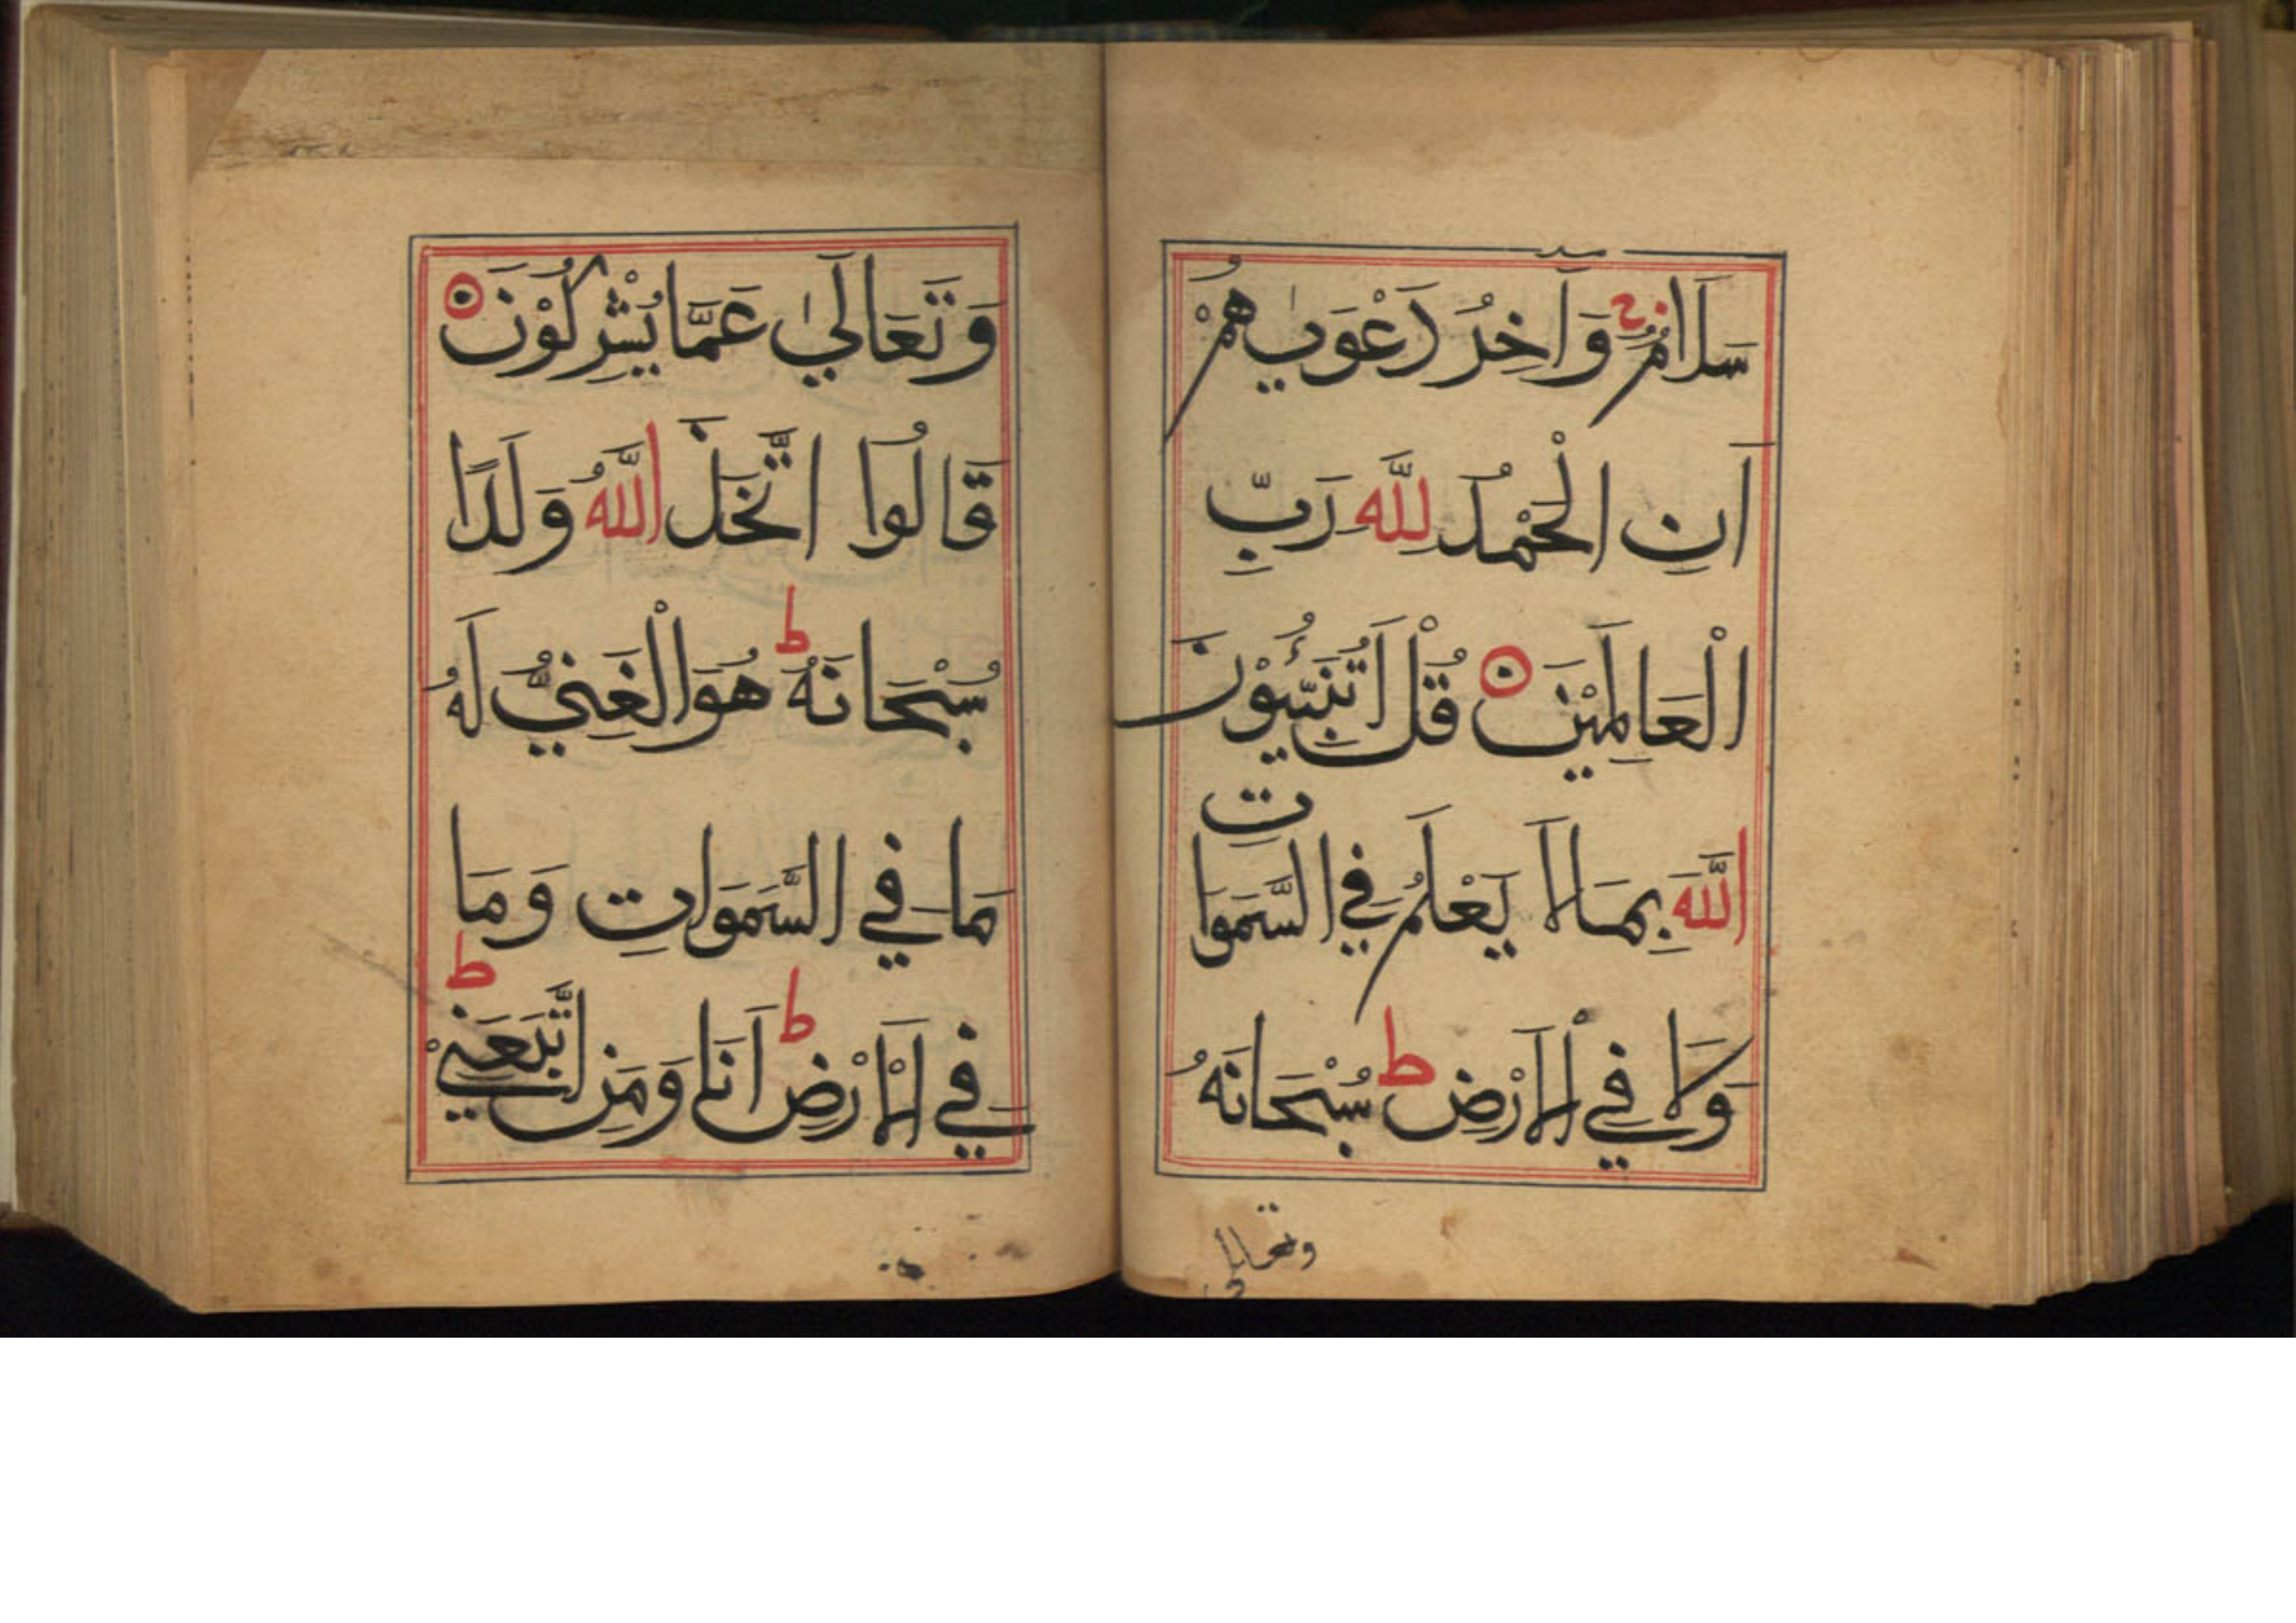 سَلَامٌ ج وَآخِرُ دَعْوٰيهُمْ
اَنِ الْحَمْدُ لِلَّهِ رَبِّ
الْعَالَمِيْنَ ۝ قُلْ اَتُنَبِّئُوْنَ
اللَّهَ بِمَا لَا يَعْلَمُ فِي السَّمَوَاتِ
وَلَا فِي الْاَرْضِ ط سُبْحَانَهُ
وتعالى
وَتَعَالَىٰ عَمَّا يُشْرِكُوْنَ ۝
قَالُوا اتَّخَذَ اللَّهُ وَلَدًا
سُبْحَانَهُ ط هُوَ الْغَنِيُّ لَهُ
مَا فِي السَّمَوَاتِ وَمَا
فِي الْاَرْضِ ط اَنَا وَمَنِ اتَّبَعَنِيْ ط